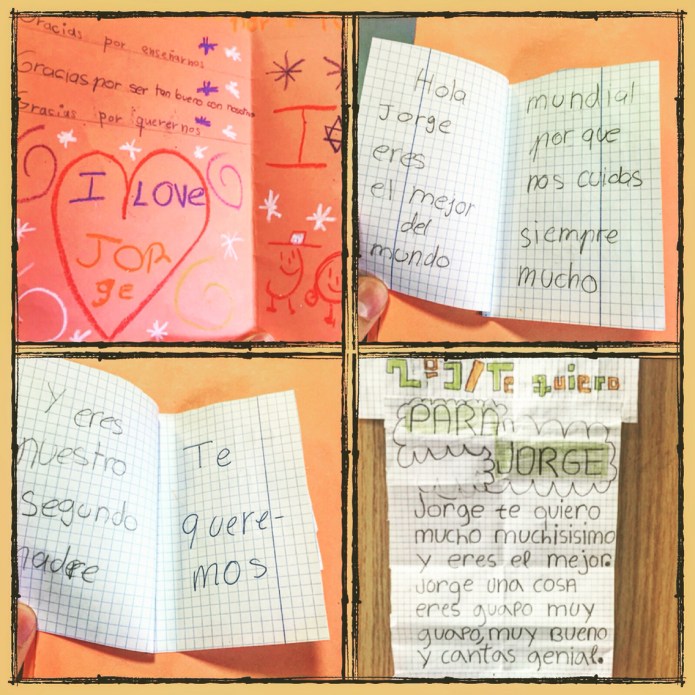 Gracias por enseñarnos
Gracias por ser tan bueno con nosotros
Gracias por querernos
I LOVE
JOR
ge
I
Hola
Jorge
eres
el mejor
del
mundo
mundial
por que
nos cuidas
siempre
mucho
Y eres
nuestro
segundo
Te
quere-
mos
2º J/Te quiero
PARA
JORGE
Jorge te quiero
mucho muchisisimo
y eres el mejor.
Jorge una cosa
eres guapo muy
guapo, muy bueno
y cantas genial.